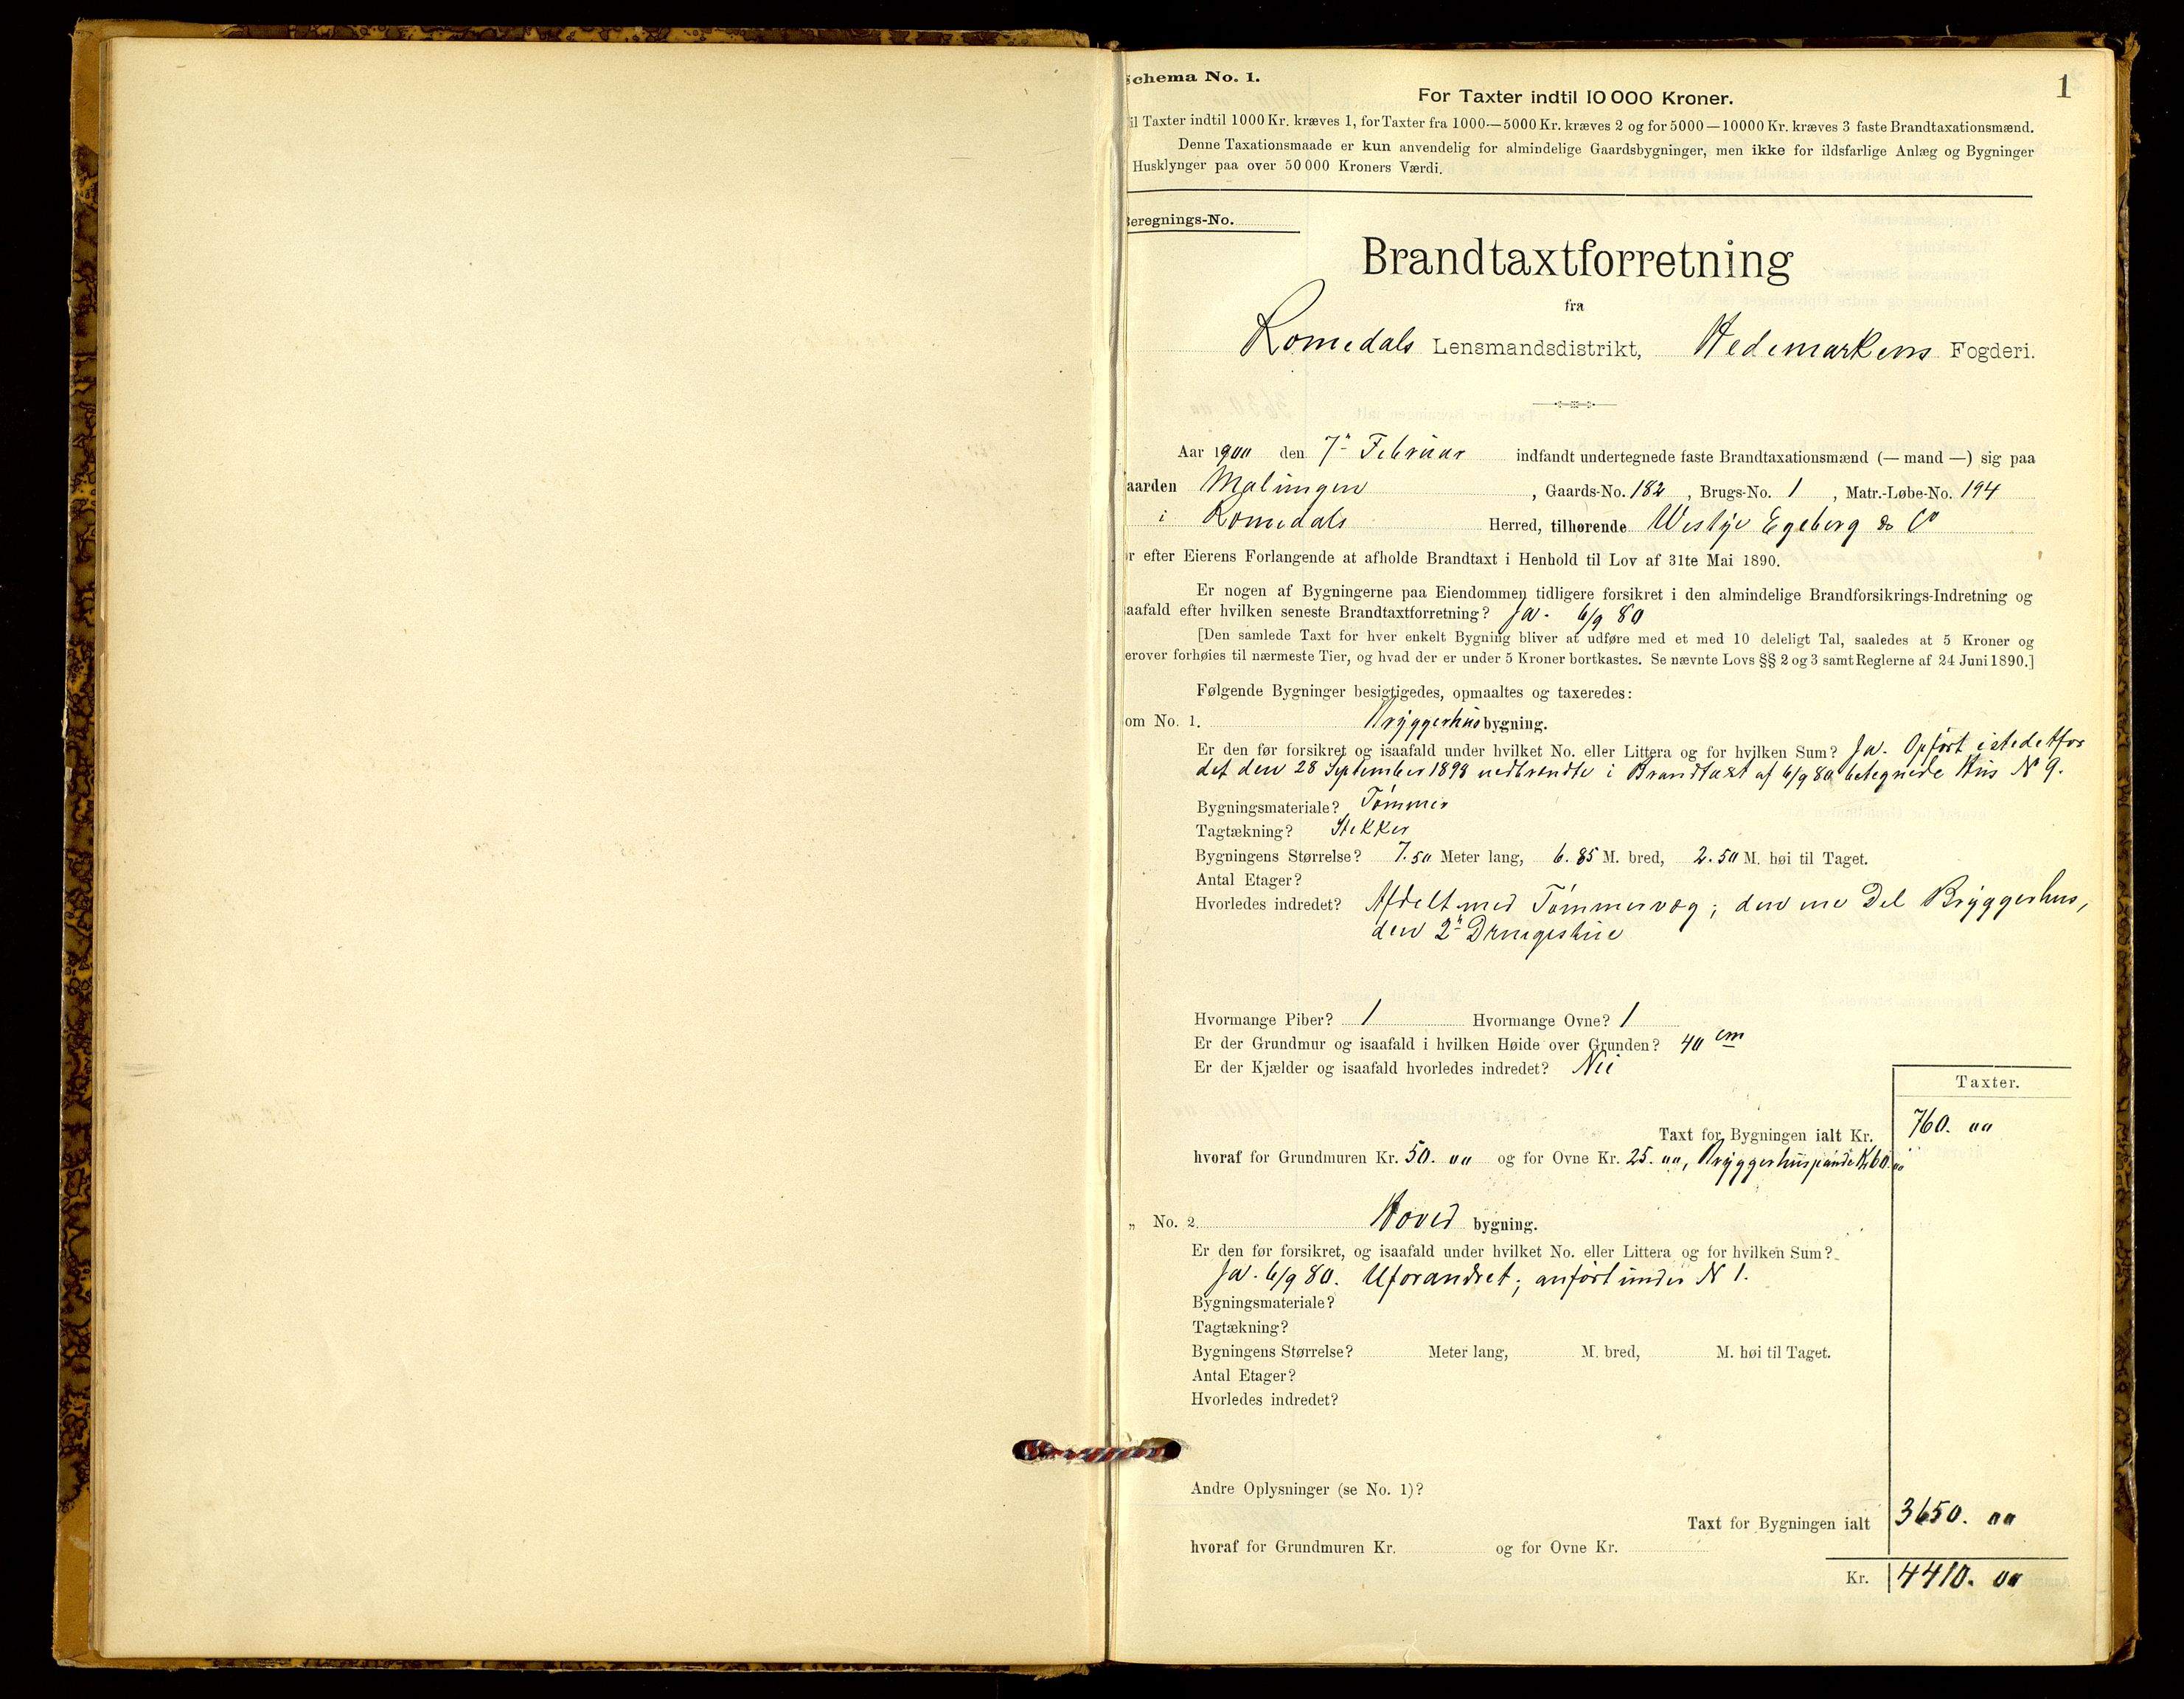 1
Schema No. 1.
For Taxter indtil 10 000 Kroner.
il Taxter indtil 1000 Kr. kræves 1, for Taxter fra 1000—5000 Kr. kræves 2 og for 5000—10000 Kr. kræves 3 faste Brandtaxationsmænd.
Denne Taxationsmaade er kun anvendelig for almindelige Gaardsbygninger, men ikke for ildsfarlige Anlæg og Bygninger
Husklynger paa over 50 000 Kroners Værdi.
Beregnings-No.
Brandtaxtforretning
fra
Romedals Lensmandsdistrikt, Hedemarkens Fogderi.
Aar 1900 den 7de Februar indfandt undertegnede faste Brandtaxationsmænd (— mand —) sig paa
aarden Malungen, Gaards-No. 182, Brugs-No. 1, Matr.-Løbe-No. 194
i Romedals Herred, tilhørende Westye Egeberg & Co
r efter Eierens Forlangende at afholde Brandtaxt i Henhold til Lov af 31te Mai 1890.
Er nogen af Bygningerne paa Eiendommen tidligere forsikret i den almindelige Brandforsikrings-Indretning og
saafald efter hvilken seneste Brandtaxtforretning? Ja. 6/9 80
[Den samlede Taxt for hver enkelt Bygning bliver at udføre med et med 10 deleligt Tal, saaledes at 5 Kroner og
erover forhøies til nærmeste Tier, og hvad der er under 5 Kroner bortkastes. Se nævnte Lovs §§ 2 og 3 samt Reglerne af 24 Juni 1890.]
Følgende Bygninger besigtigedes, opmaaltes og taxeredes:
om No. 1. Bryggerhusbygning.
Er den før forsikret og isaafald under hvilket No. eller Littera og for hvilken Sum? Ja. Opført istedetfor
det den 28 September 1898 nedbrendte i Brandtaxt af 6/9 80 betegnede Hus N 9.
Bygningsmateriale? Tømmer
Tagtækning? Stekker
Bygningens Størrelse? 7.50 Meter lang, 6.85 M. bred, 2.50 M. høi til Taget.
Antal Etager?
Hvorledes indredet? Afdelt med Tømmervæg; den ene Del Bryggerhus,
den 2n Drengestue
Hvormange Piber? 1 Hvormange Ovne? 1
Er der Grundmur og isaafald i hvilken Høide over Grunden? 40 cm
Er der Kjælder og isaafald hvorledes indredet? Nei
Taxter.
Taxt for Bygningen ialt Kr. 760. 00
hvoraf for Grundmuren Kr. 50. 00 og for Ovne Kr. 25. 00, Bryggerhuspande Kr 60. 00
„ No. 2. Hovedbygning.
Er den før forsikret, og isaafald under hvilket No. eller Littera og for hvilken Sum?
Ja. 6/9 80. Uforandret; anført under N 1.
Bygningsmateriale?
Tagtækning?
Bygningens Størrelse? Meter lang, M. bred, M. høi til Taget.
Antal Etager?
Hvorledes indredet?
Andre Oplysninger (se No. 1)?
Taxt for Bygningen ialt 3650. 00
hvoraf for Grundmuren Kr. og for Ovne Kr.
Kr. 4410. 00